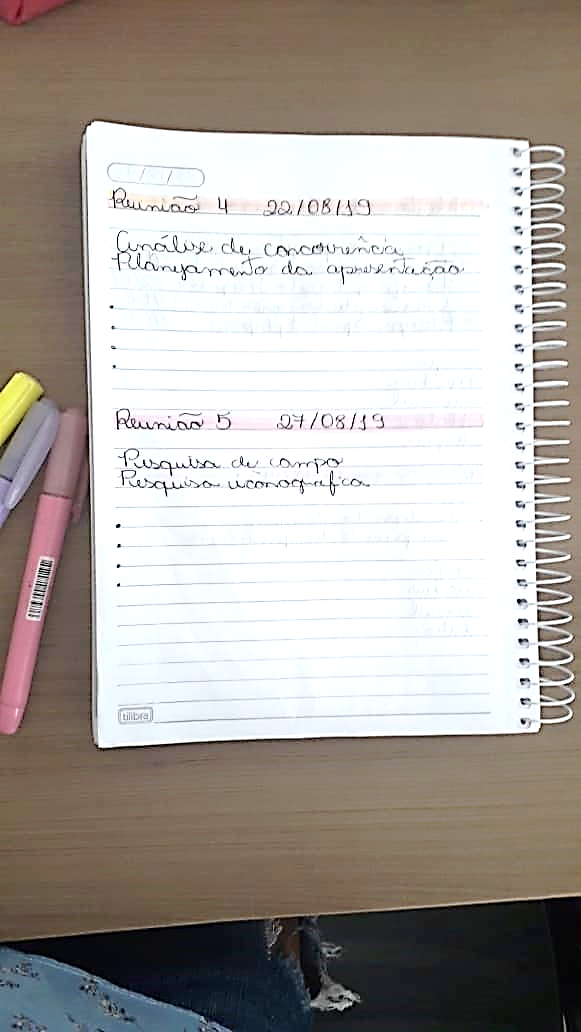 / /
Reunião 4 22/08/19
Análise de concorrência
Planejamento da apresentação
•
•
•
•
Reunião 5 27/08/19
Pesquisa de campo
Pesquisa iconografica
•
•
•
•
tilibra